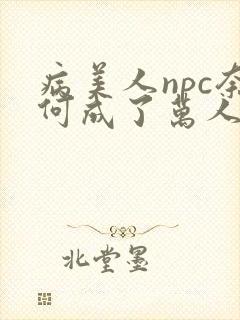 病美人npc奈
何成了萬人
北堂墨